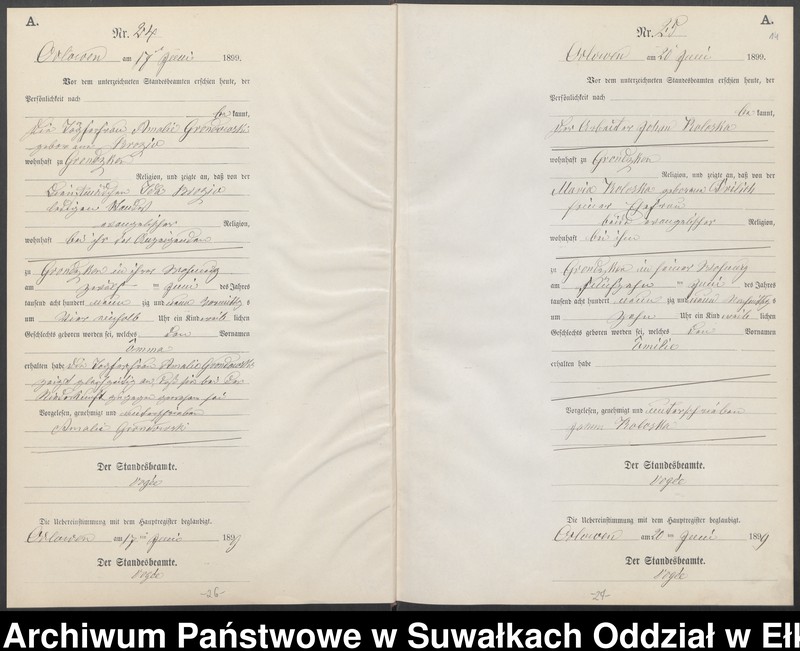 A.
Nr. 24
Orlowen am 17 ten Juni 1899.
Vor dem unterzeichneten Standesbeamten erschien heute, der
Persönlichkeit nach
be kannt,
die Amalie Gronowski
geborene Brozio
wohnhaft zu Grondzken
Religion, und zeigte an, daß von der
Brozio
ledigen Standes
evangelischer Religion,
wohnhaft bei ihr der Anzeigenden
zu Grondzken in ihrer Wohnung
am zwölften Juni des Jahres
tausend acht hundert neun zig und neun Vormittags
um vier einhalb Uhr ein Kind weib lichen
Geschlechts geboren worden sei, welches den Vornamen
Emma
erhalten habe. Die Amalie Gronowski
zeigt gleichzeitig an, daß sie bei der
Niederkunft zugegen gewesen sei
Vorgelesen, genehmigt und unterschrieben
Amalie Gronowski
Der Standesbeamte.
Vogde
Die Uebereinstimmung mit dem Hauptregister beglaubigt.
Orlowen am 17 ten Juni 1899
Der Standesbeamte.
Vogde
-26-
A.
Nr. 25
Orlowen am 20 Juni 1899.
Vor dem unterzeichneten Standesbeamten erschien heute, der
Persönlichkeit nach
be kannt,
der Arbeiter Johann Koloska
wohnhaft zu Grondzken
Religion, und zeigte an, daß von der
Maria Koloska geborene
seiner Ehefrau
beide evangelischer Religion,
wohnhaft bei ihm
zu Grondzken in seiner Wohnung
am fünfzehn ten Juni des Jahres
tausend acht hundert neun zig und neun Nachmittags
um zehn Uhr ein Kind weib lichen
Geschlechts geboren worden sei, welches den Vornamen
Emilie
erhalten habe
Vorgelesen, genehmigt und unterschrieben
Johann Koloska
Der Standesbeamte.
Vogde
Die Uebereinstimmung mit dem Hauptregister beglaubigt.
Orlowen am 20 ten Juni 1899
Der Standesbeamte.
Vogde
Archiwum Państwowe w Suwałkach Oddział w Ełk